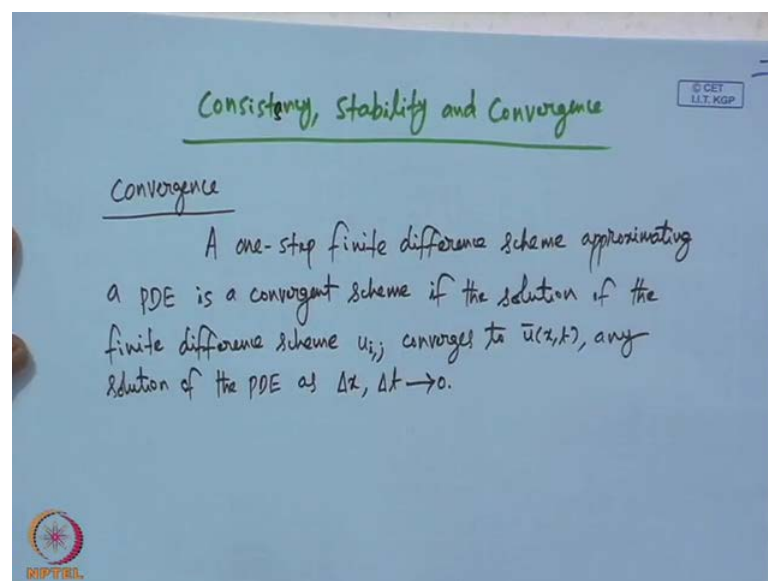 Consistency, Stability and Convergence
© CET
I.I.T. KGP
Convergence
A one-step finite difference scheme approximating
a PDE is a convergent scheme if the solution of the
finite difference scheme u_{i,j} converges to ū(x,t), any
solution of the PDE as Δx, Δt → 0.
NPTEL